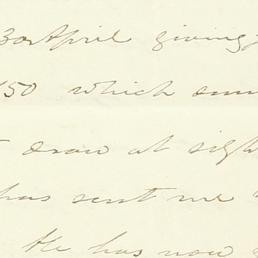 30 April giving
150 which
draw at sight
has sent me
He has now